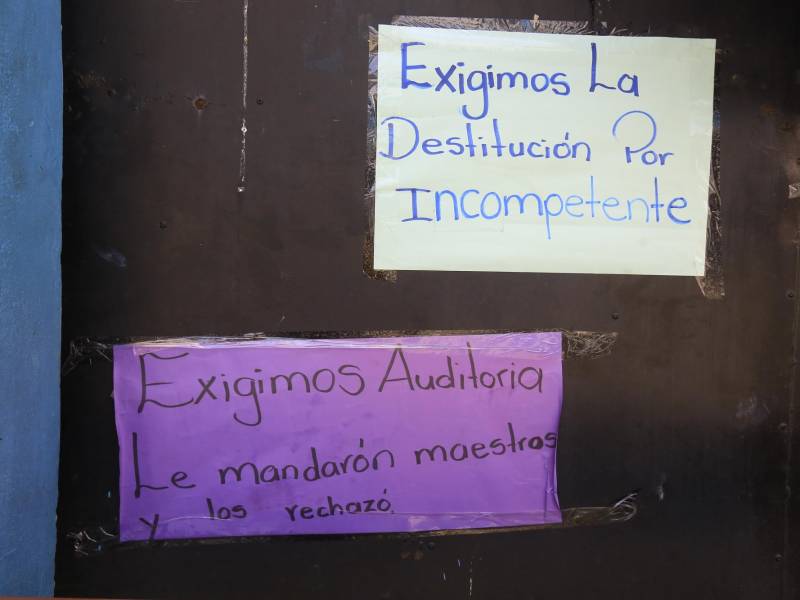 Exigimos La
Destitución Por
Incompetente
Exigimos Auditoria
Le mandarón maestros
y los rechazó